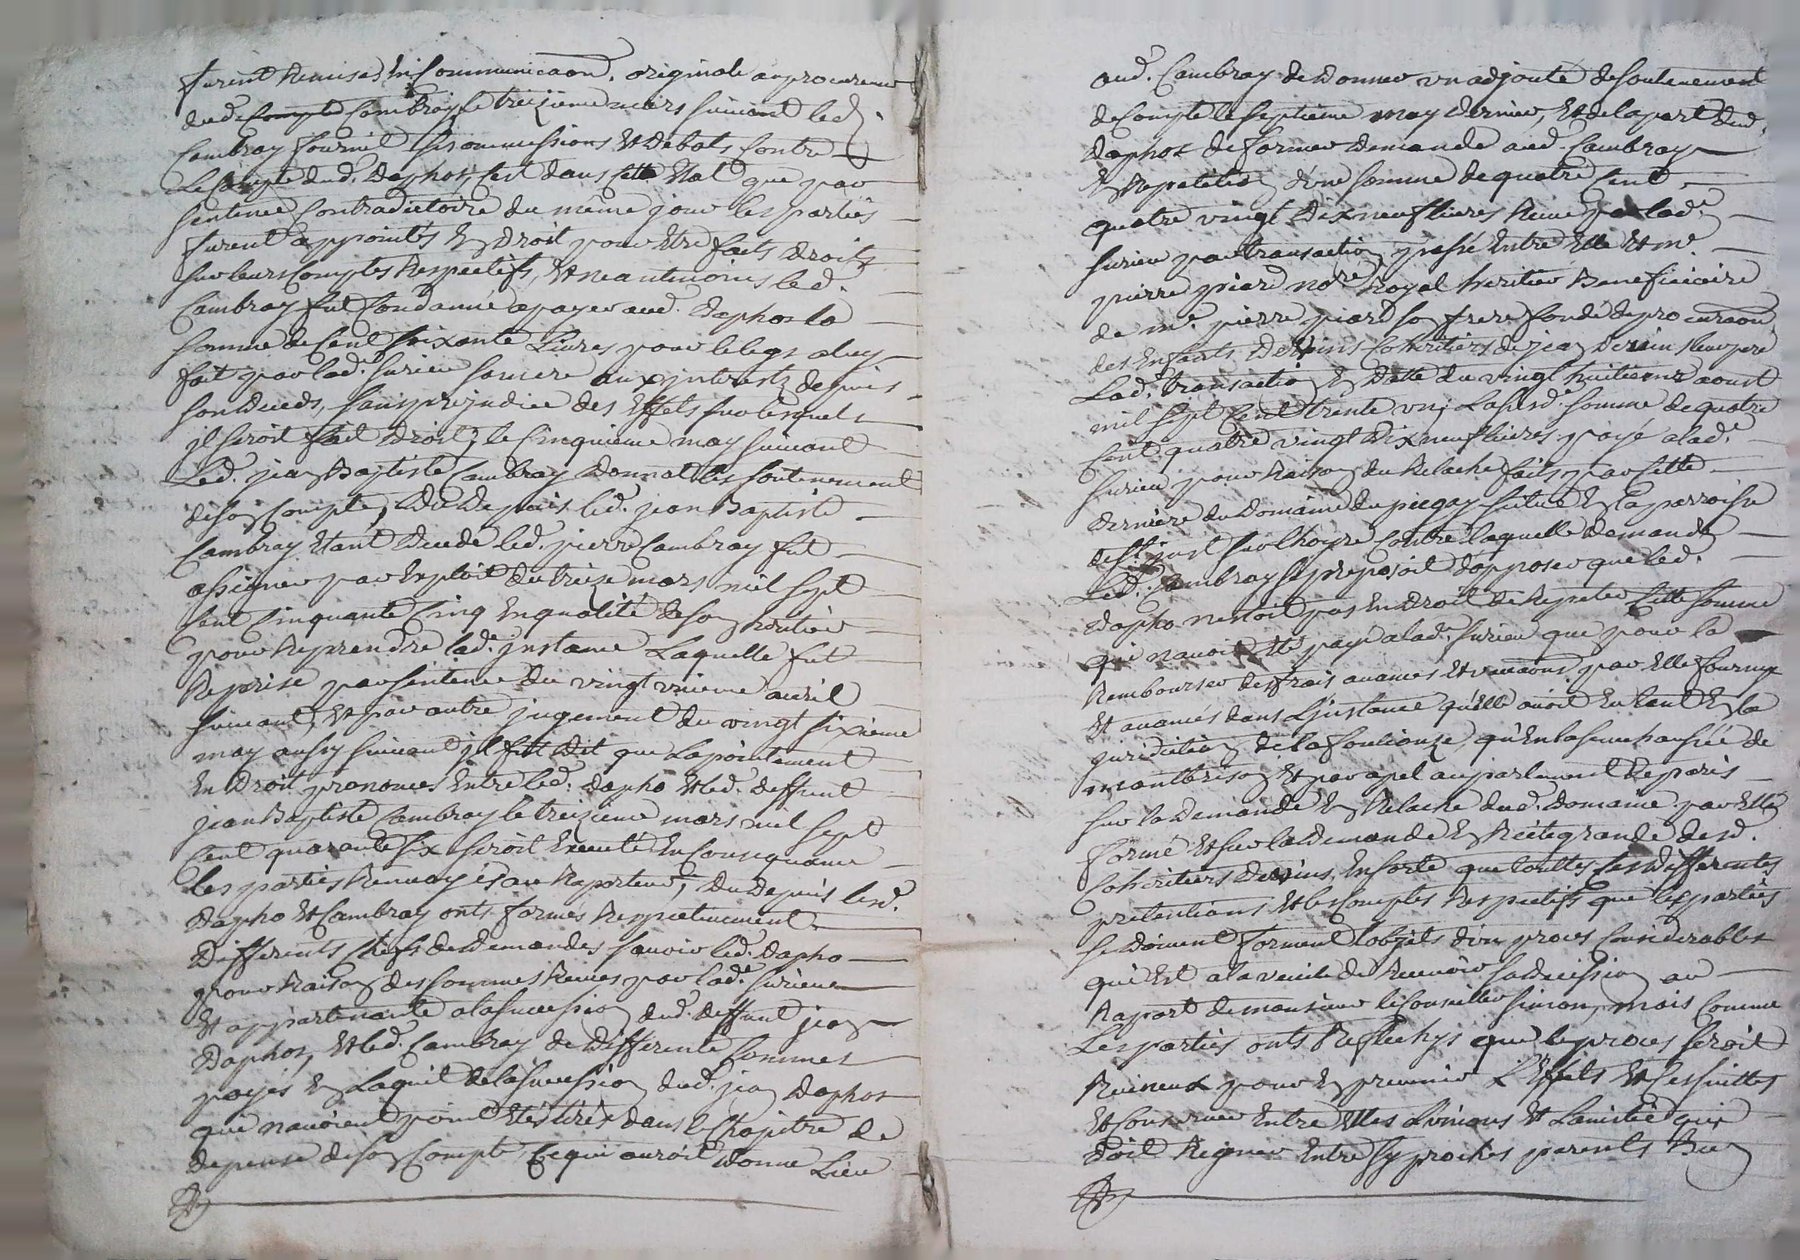 furent Remises En Communicaon. originale au procureur
dud. Compte Cambray le treizieme mars suivant led.
Cambray fournit ses ommissions Et debats Contre
Le Compte dud. Daphos, C'est dans cette Etat que par
sentence Contradictoire du même jour les parties
furent appointés En droit pour Etre faits droits
sur leurs Comptes Respectifs, Et neantmoins led.
Cambray fut Condamné a payer aud. Daphos la
somme de Cent soixante Livres pour le legs a luy
fait par lad. surieu sa mere aux interests depuis
son deceds, sans prejudice des Effets sur lesquels
il seroit fait droit, le Cinquieme may suivant
Led. jean Baptiste Cambray donnat les soutenement
de son Compte, Du Depuis led. jean Baptiste
Cambray Etant decedé led. pierre Cambray fut
assigner par Exploit du treize mars mil sept
cent Cinquante Cinq En qualité de son heritier
pour Reprendre lad. instance Laquelle fut
Reprise par sentence du vingt unieme avril
suivant, Et par autre jugement du vingt sixieme
may aussy suivant il fut dit que Lapointement
En droit prononcés Entre led. Dapho Et led. deffunt
jean Baptiste Cambray le treizieme mars mil sept
Cent quarante six seroit Executé En Consequance
Les parties Renvoyés au Raporteur, Du Depuis lesd.
Dapho Et Cambray onts formés Respectivement
Differents Chefs de Demandes savoir led. Dapho
pour Raison des sommes Reçues par lad.e surieu
Et appartenante a la succession dud. deffunt jean
Daphos, Et led. Cambray de differente sommes
payés En Laquit de la succession dud. jean Daphos
qui n'avoient point Etés tirés dans le Chapitre de
depense de son Compte, Ce qui auroit donné Lieu
aud. Cambray de donner un adjouté de soutenement
de Compte le septieme may dernier, Et de la part dud.
Daphos de former demande aud. Cambray
En Repetition d'une somme de quatre Cent
quatre vingt Dix neuf livres Reçue par lad.e
surieu par transaction passé Entre Elle Et me.
pierre piard nore Royal heritier Beneficiaire
de me. pierre piard son frere fondé de procuraon
des Enfants Dervins Coheritiers de jean Dervin Leur pere
Lad.e transaction En datte du vingt huitieme aoust
mil sept Cent trente un, Lasusd. somme de quatre
Cent quatre vingt Dix neuf livres payé a lad.e
surieu pour Raison du Relache faits par Cette
derniere du Domaine du situé En la parroisse
de st just sur Loyre Contre laquelle demande
Led. Cambray se preposoit d'opposer que led.
Dapho n'estoit pas En droit de Repeter Cette somme
qui n'avoit Eté payé a lad. surieu que pour la
Rembourser des frais avances Et par Elle fournys
Et avancés dans L'instance qu'Elle avoit En tant En la
juridition de la qu'En la senechaussée de
montbrison Et par apel au parlement de paris
sur la demande En Relache dud. Domaine par Elle
formé Et sur la demande En Reïntegrande desd.
Coheritiers Dervins, En sorte que touttes Ces differentes
pretentions Et les Comptes Respectifs que les parties
se doivent forment l'objets d'un proces Considerables
qui Est a la veille de Recevoir sa decission au
Raport de monsieur le Conseiller simon, mais Comme
Les parties onts Reflechys que le proces seroit
Ruineux pour En prevenir L'Effets Et les suittes
Et Conserver Entre Elles L'unions Et L'amitié qui
doit Regner Entre sy proches parents